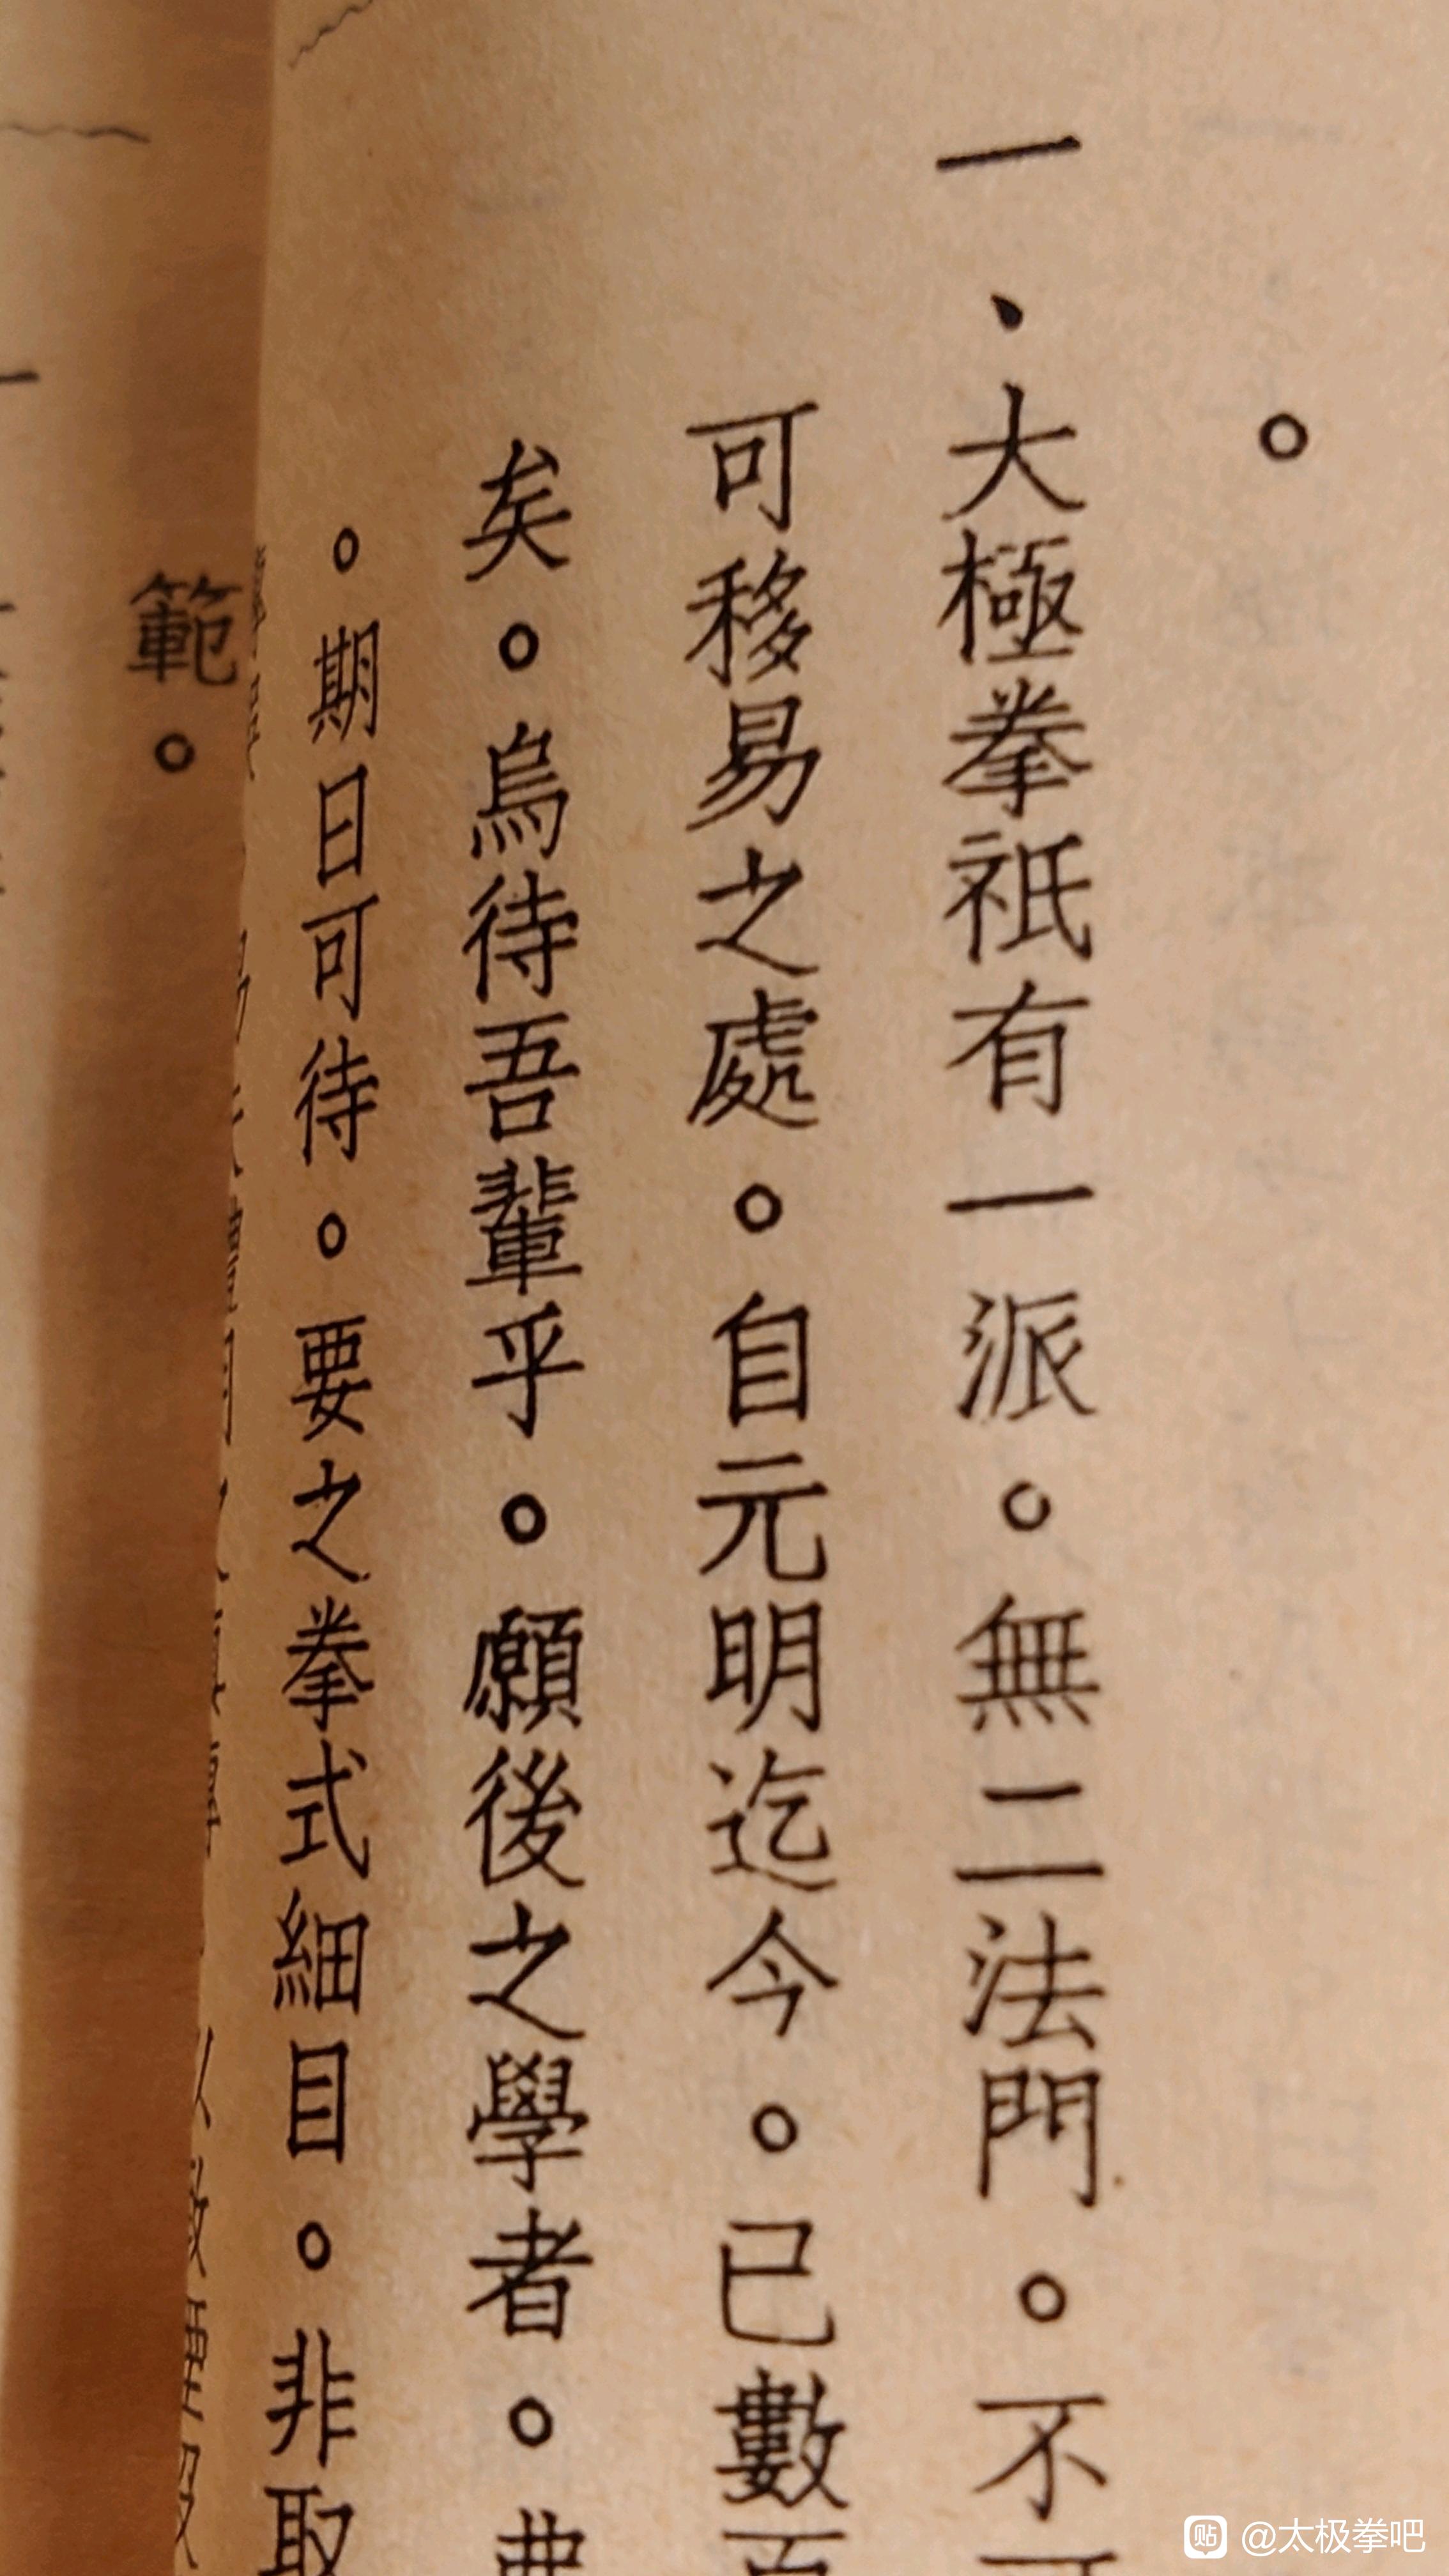 。
一、大極拳祇有一派。無二法門。不
可移易之處。自元明迄今。已數百
矣。烏待吾輩乎。願後之學者。弗
。期日可待。要之拳式細目。非取
範。
@太极拳吧